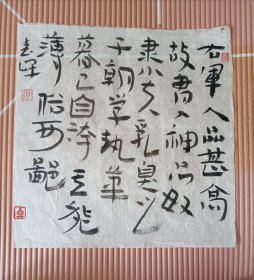 右軍人品甚高
故書入神品奴
隶小夫乳臭之
子朝学执筆
暮已自誇其能
薄俗可鄙